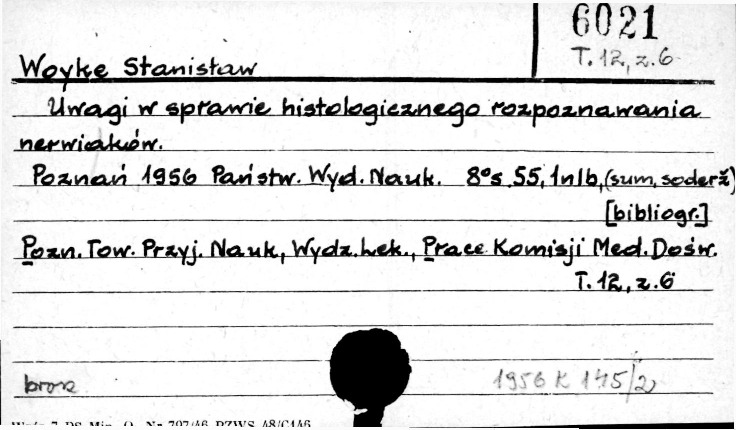 6021
T. 12, z. 6
Woyke Stanisław
Uwagi w sprawie histologicznego rozpoznawania
nerwiaków.
Poznań 1956 Państw. Wyd. Nauk. 8° s. 55, 1nlb, (sum, soderž)
[bibliogr.]
Pozn. Tow. Przyj. Nauk, Wydz. Lek., Prace Komisji Med. Dośw.
T. 12, z. 6
brosz
1956 K 145/2